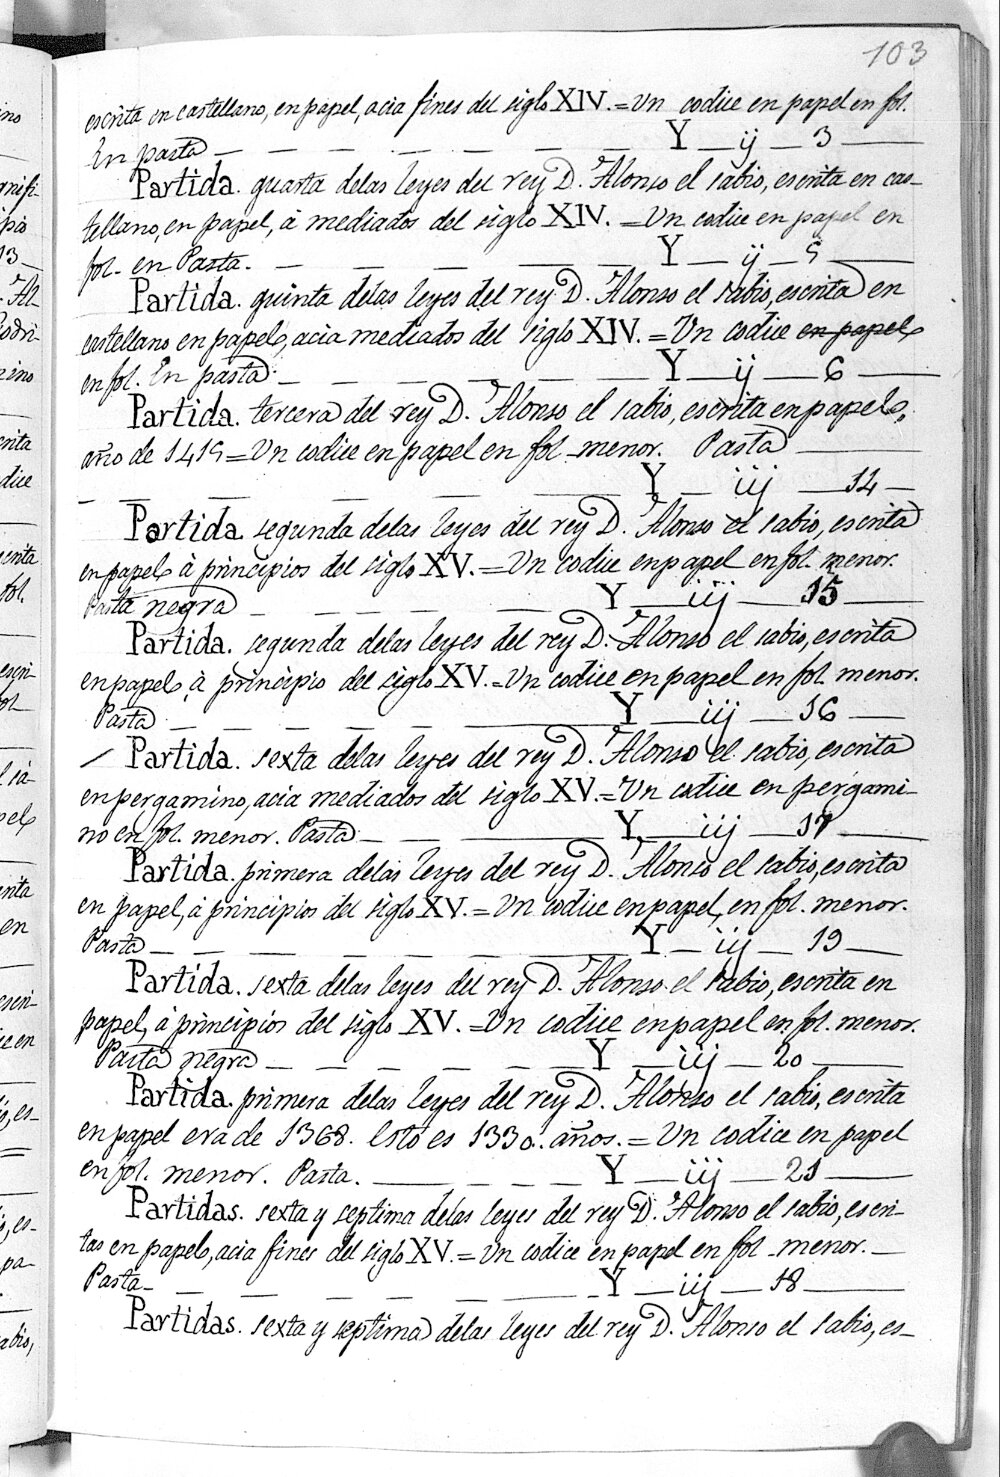 103
escrita en castellano, en papel, acia fines del siglo XIV. = Un codice en papel en fol.
En pasta — — — — — — — Y — ij — 3 —
Partida. quarta delas leyes del rey D. Alonso el sabio, escrita en cas-
tellano, en papel, à mediados del siglo XIV. = Un codice en papel en
fol. en Pasta. — — — — — — Y — ij — 5 —
Partida. quinta delas leyes del rey D. Alonso el sabio, escrita en
castellano en papel, acia mediados del siglo XIV. = Un codice en papel
en fol. En pasta. — — — — — — Y — ij — 6 —
Partida. tercera del rey D. Alonso el sabio, escrita en papel,
año de 1415 = Un codice en papel en fol. menor. Pasta —
— — — — — — Y — iij — 14 —
Partida. segunda delas leyes del rey D. Alonso el sabio, escrita
en papel à principios del siglo XV. = Un codice en papel en fol. menor.
Pasta negra — — — — — Y — iij — 15 —
Partida. segunda delas leyes del rey D. Alonso el sabio, escrita
en papel, à principio del siglo XV. = Un codice en papel en fol. menor.
Pasta — — — — — — Y — iij — 16 —
/ Partida. sexta delas leyes del rey D. Alonso el sabio, escrita
en pergamino, acia mediados del siglo XV. = Un codice en pergami-
no en fol. menor. Pasta — — — Y — iij — 17 —
Partida. primera delas leyes del rey D. Alonso el sabio, escrita
en papel, à principios del siglo XV. = Un codice en papel, en fol. menor.
Pasta — — — — — — Y — iij — 19 —
Partida. sexta delas leyes del rey D. Alonso el sabio, escrita en
papel, à principios del siglo XV. = Un codice en papel en fol. menor.
Pasta negra — — — — — — Y — iij — 20 —
Partida. primera delas leyes del rey D. Alonso el sabio, escrita
en papel era de 1368. esto es 1330. años. = Un codice en papel
en fol. menor. Pasta. — — — — Y — iij — 21 —
Partidas. sexta y septima delas leyes del rey D. Alonso el sabio, escri-
tas en papel, acia fines del siglo XV. = Un codice en papel en fol. menor. —
Pasta — — — — — — Y — iij — 18 —
Partidas. sexta y septima delas leyes del rey D. Alonso el sabio, es-